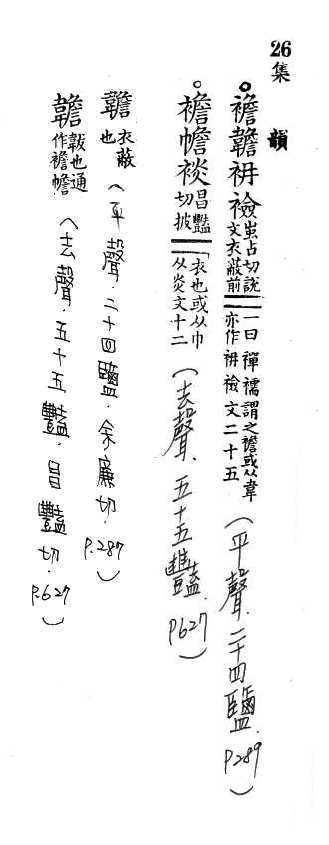 26
集韻
。襜韂袡襝蚩占切說文衣蔽前一曰襌襦謂之襜或从韋亦作袡襝文二十五（平聲．二十四鹽．P.289）
。襜幨裧昌豔切披衣也或从巾从炎文十二（去聲．五十五豔．P627）
韂衣蔽也（平聲．二十四鹽．余廉切．P.287）
韂韍也通作襜幨（去聲．五十五豔．昌豔切．P.627）